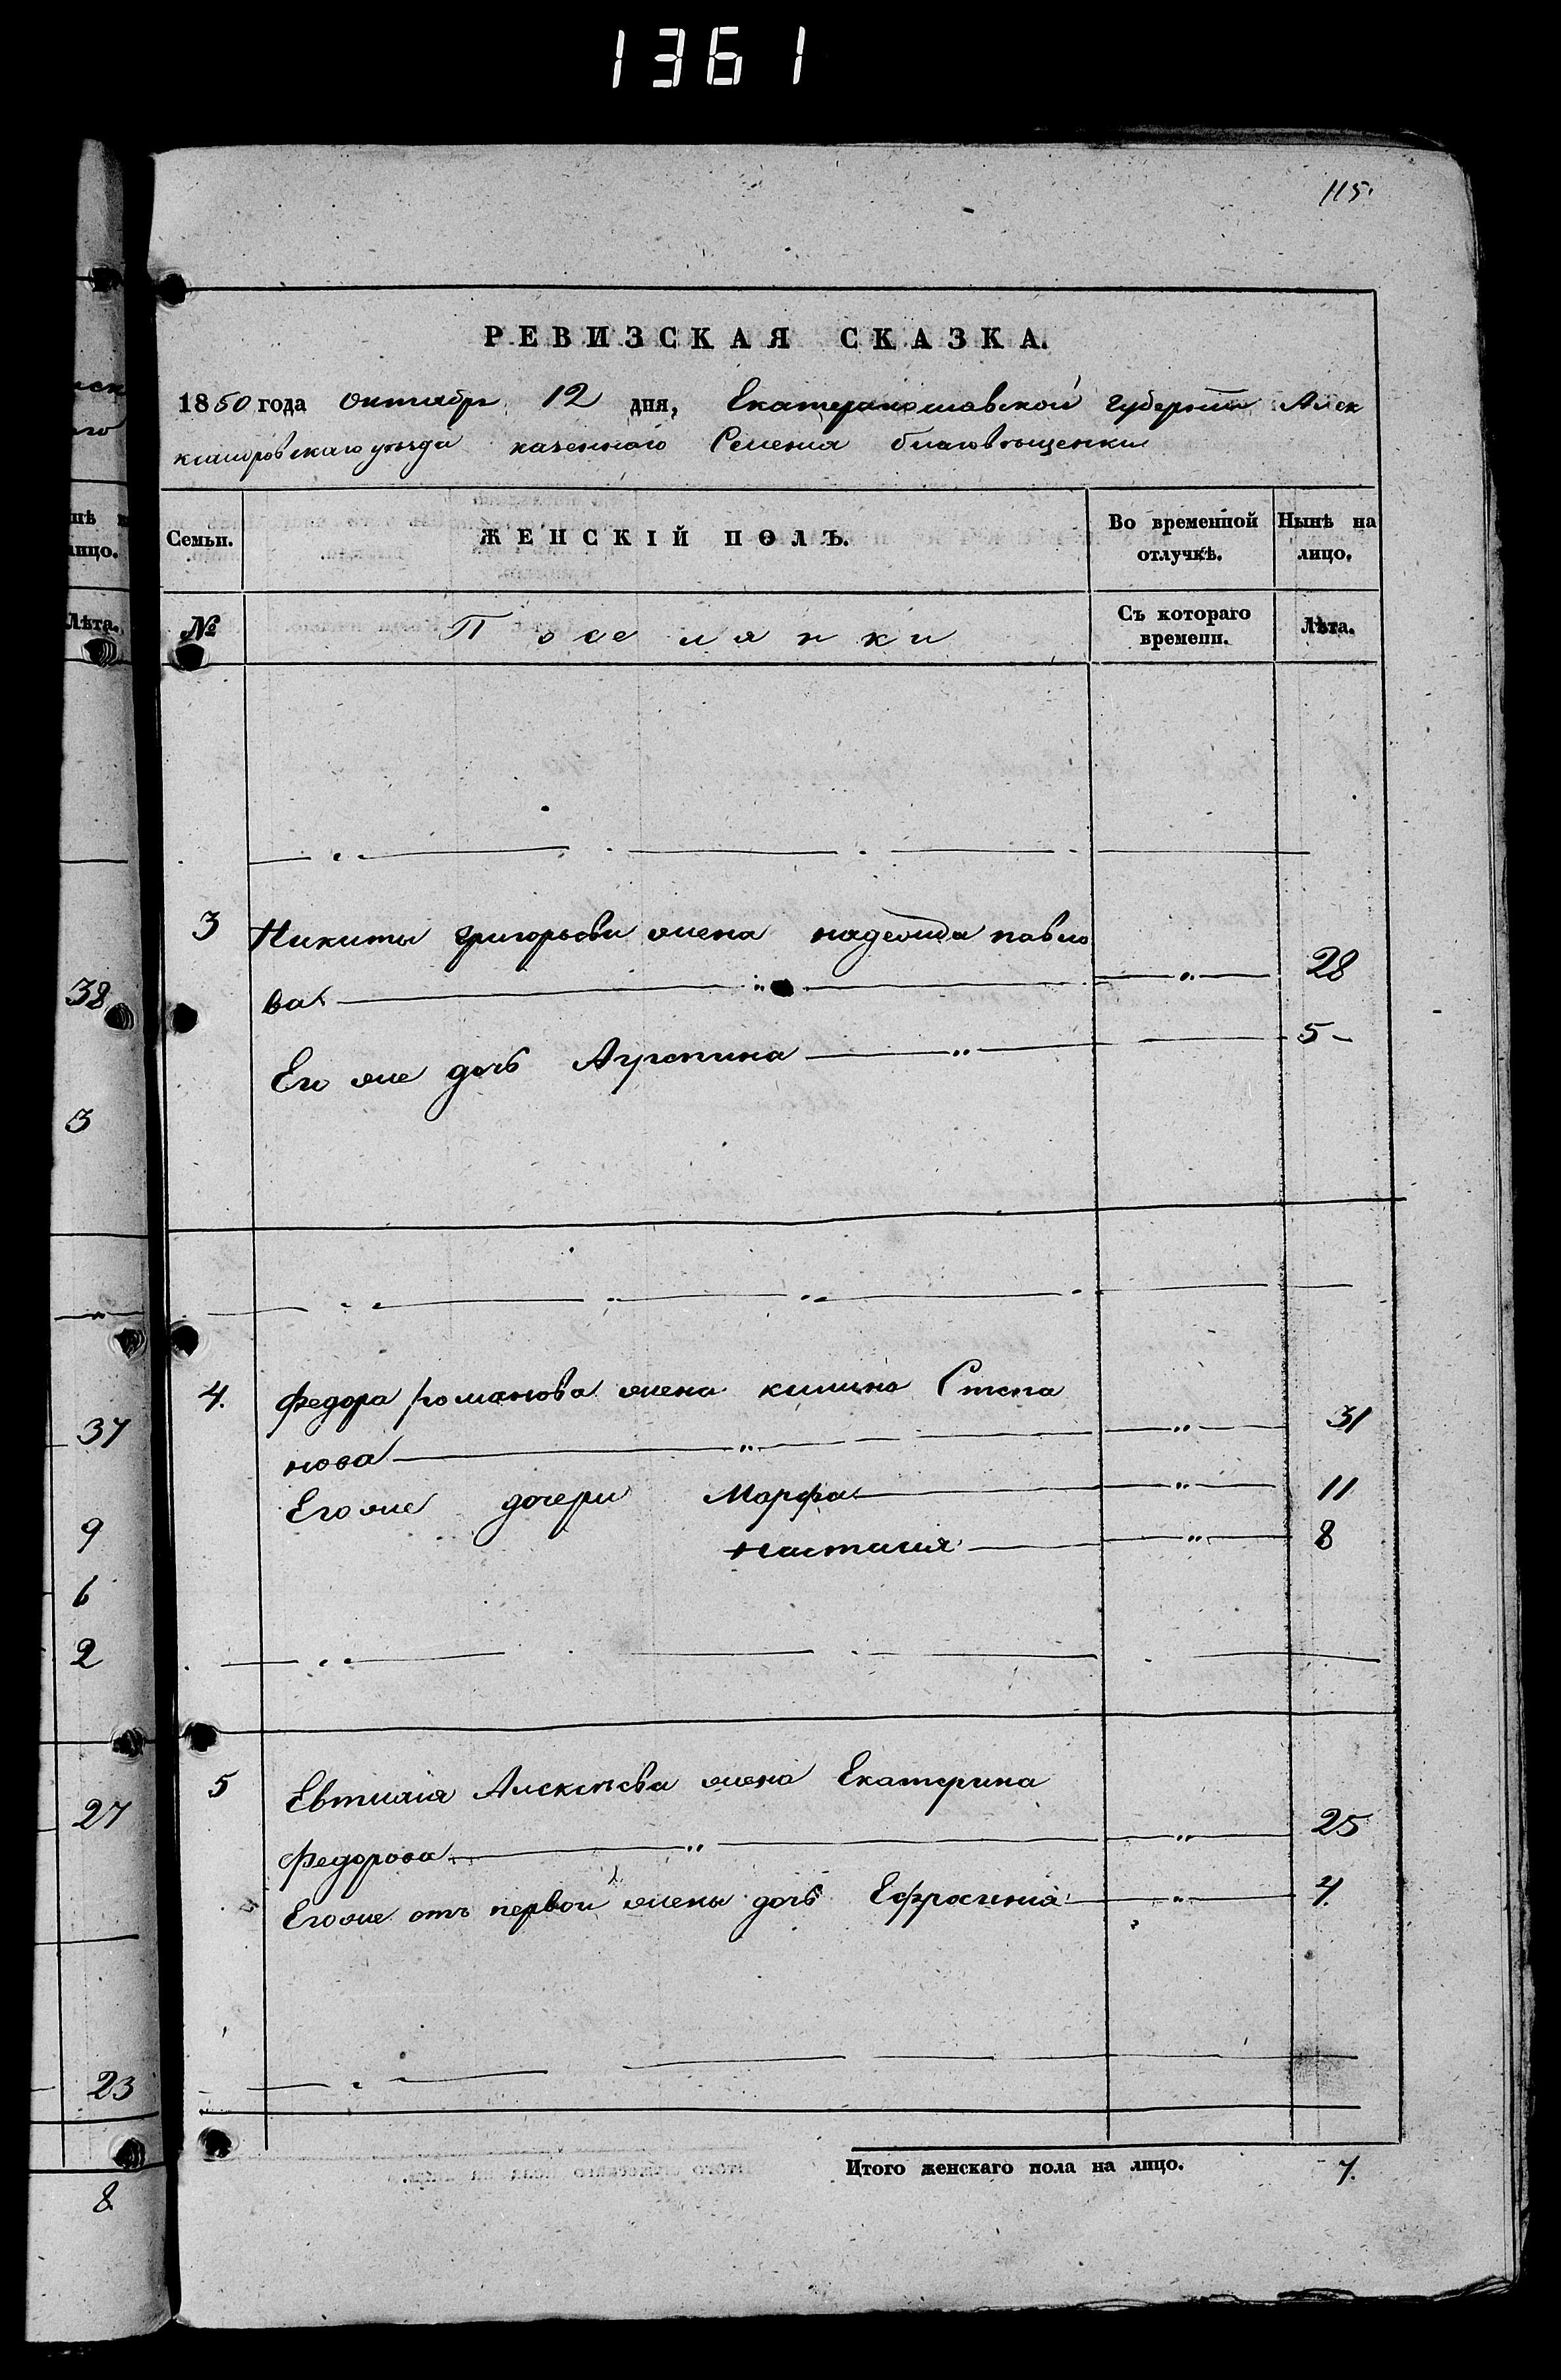 1361
115.
РЕВИЗСКАЯ СКАЗКА.
1850 года октября 12 дня, Екатеринославской губернии Алек
ксандровскаго уезда казеннаго Селения благовещенки
Семьи. ЖЕНСКІЙ ПОЛЪ. Во временной отлучкѣ. Нынѣ на лицо.
№ Поселянки Съ котораго времени. Лѣта.
3 Никиты григорьева жена надежда павло
ва 28
Его же дочь Агрепина 5
4. Федора романова жена Степа
нова 31
Его же дочери Марфа 11
Настасия 8
5 Евтихия Алексеева жена Екатерина
Федорова 25
Его же отъ первой жены дочь Ефросиния 4.
Итого женскаго пола на лицо. 7.
нѣ
лицо.
Лѣта.
38
3
37
9
6
2
27
23
8.